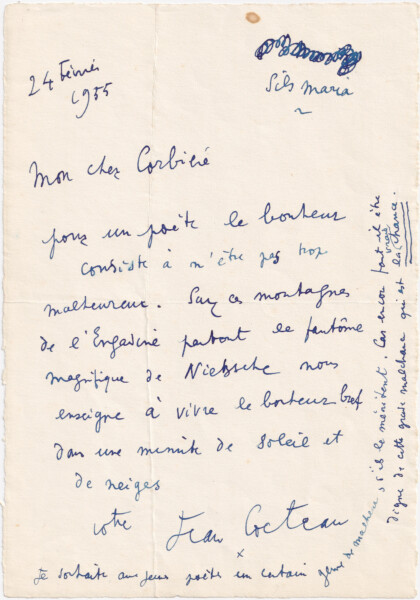 24 Février
1955
Sils Maria
Mon cher Corbière
pour un poète le bonheur
consiste à n'être pas trop
malheureux. Sur ces montagnes
de l'Engadine partout le fantôme
magnifique de Nietzsche nous
enseigne à vivre le bonheur bref
dans une minute de soleil et
de neiges
votre
Jean Cocteau
Je souhaite aux jeunes poètes un certain
genre de malheur, s'ils le méritent. Car encore faut-il être
digne de cette grande malchance qui est la vraie chance.